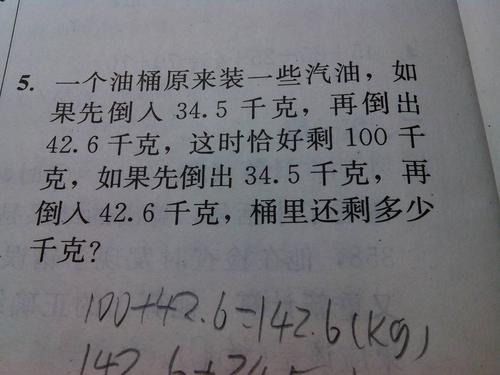 5. 一个油桶原来装一些汽油，如
果先倒入 34.5 千克，再倒出
42.6 千克，这时恰好剩 100 千
克，如果先倒出 34.5 千克，再
倒入 42.6 千克，桶里还剩多少
千克？
100+42.6=142.6(kg)